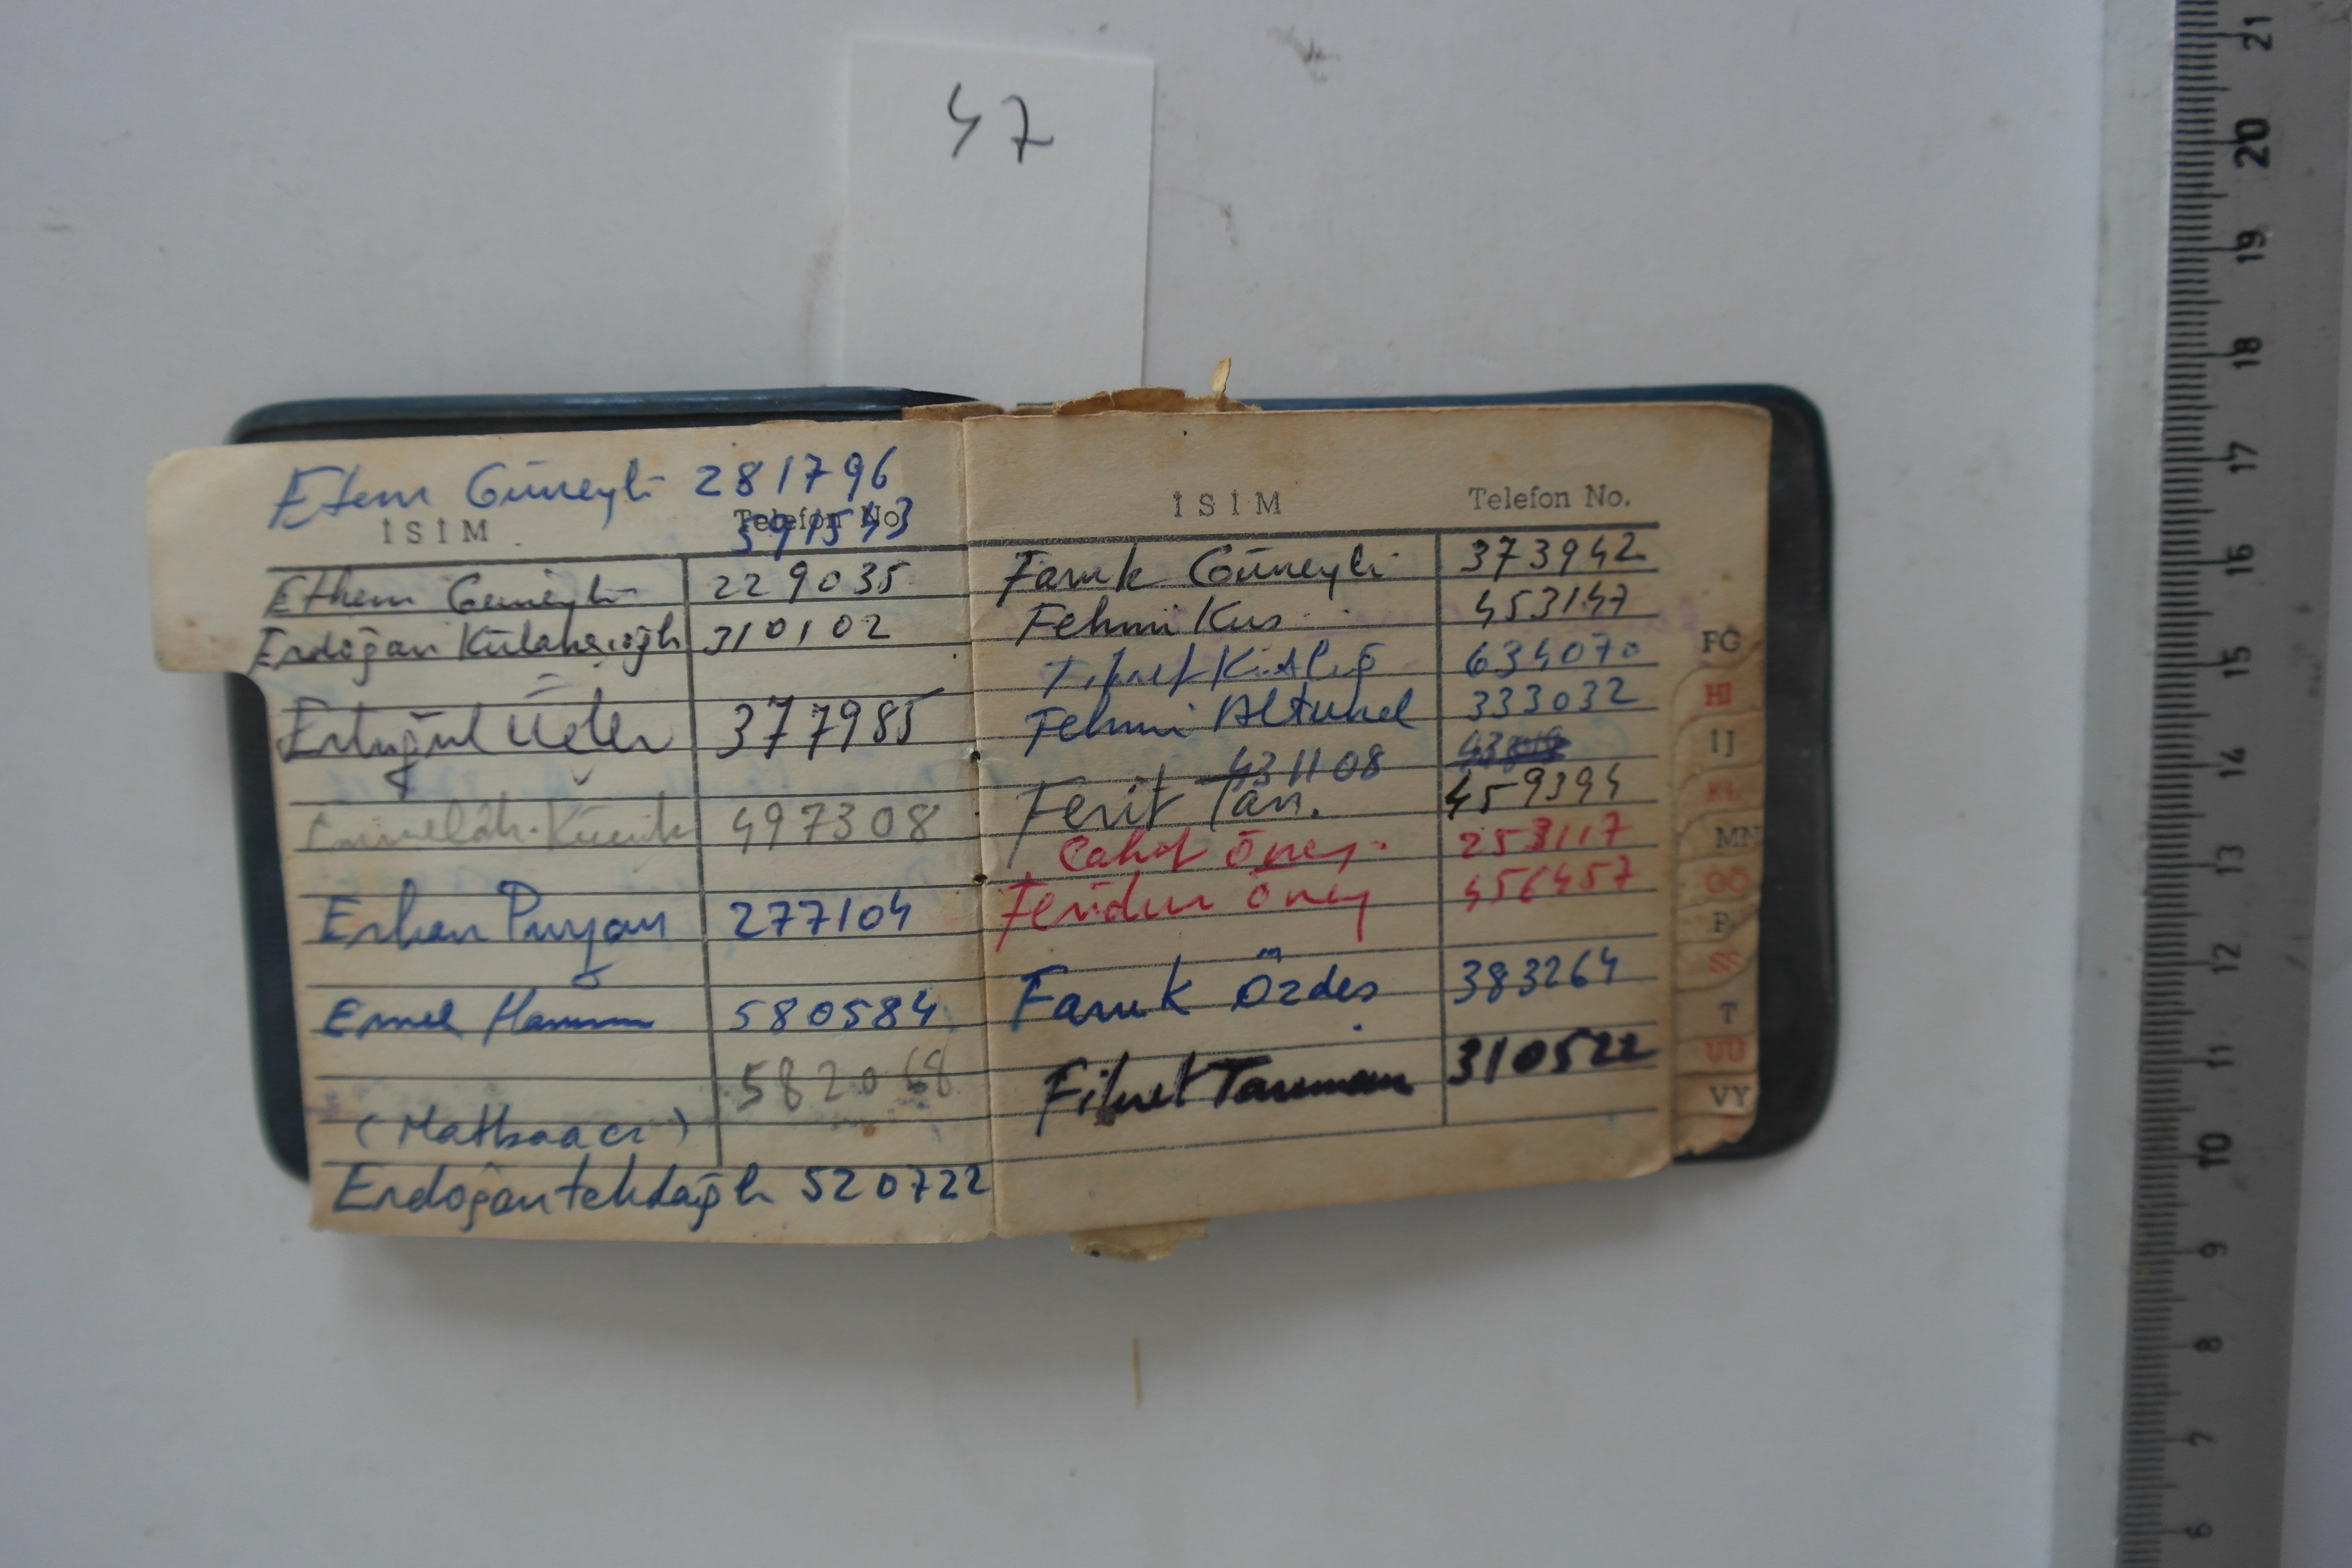 47
Etem Güneyli 281796
İSİM Telefon No.
391543
Ethem Güneyli 229035
Erdoğan Külahçıoğlu 310102
Ertuğrul 377985
497308
Erhan Puryan 277104
Emel Hanım 580584
582068
(Matbaacı)
Erdoğan tekdağlı 520722
İSİM Telefon No.
Faruk Güneyli 373942
Fehmi Kus 453147
Fikret Kızılağ 634070
Fehmi Altunel 333032
431108
Ferit Tan. 459394
Cahit Öney 253117
Feridun Öney 456457
Faruk Özdeş 383264
Fikret Tanman 310522
FG
HI
IJ
KL
MN
OÖ
P
SŞ
T
UÜ
VY
21
20
19
18
17
16
15
14
13
12
11
10
9
8
7
6